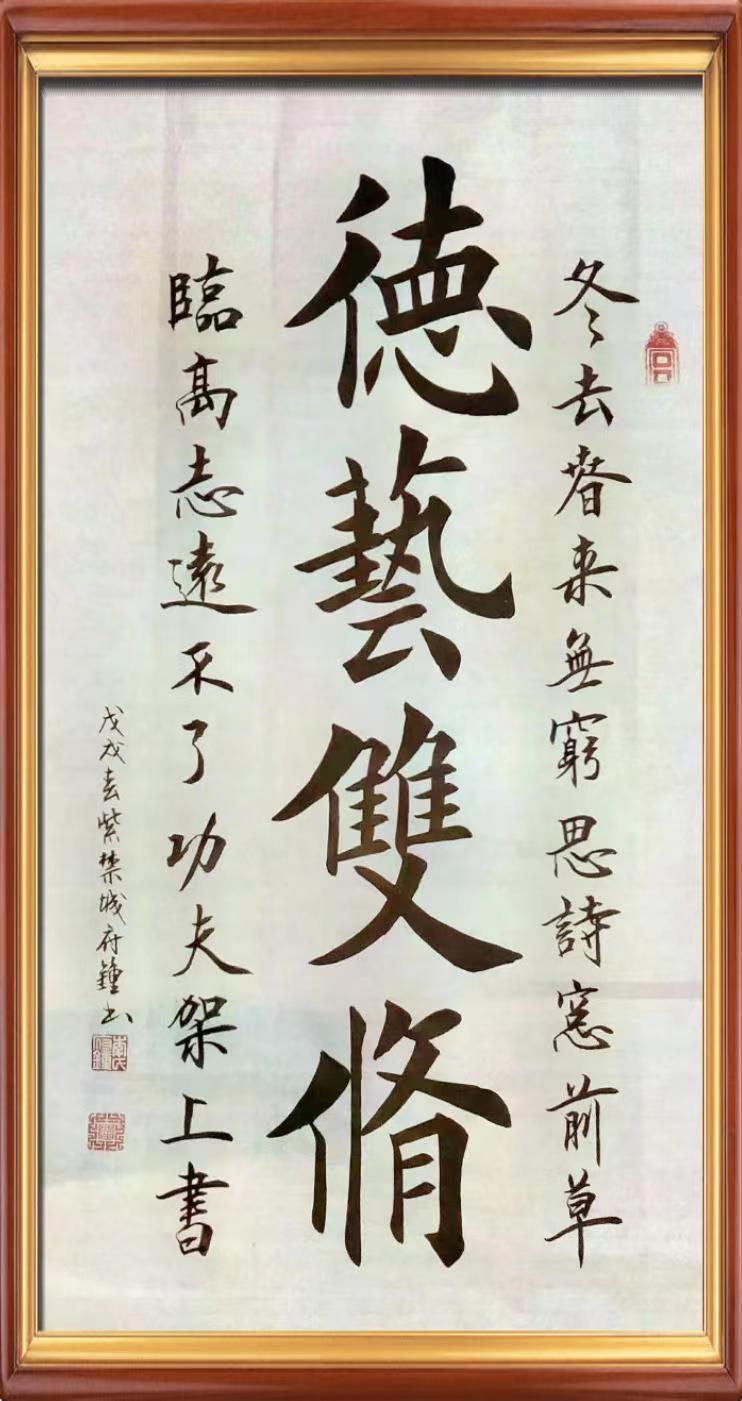 冬去春来無窮思詩窓前草
德藝雙脩
臨高志遠不了功夫架上書
戊戌去紫禁城府鍾书